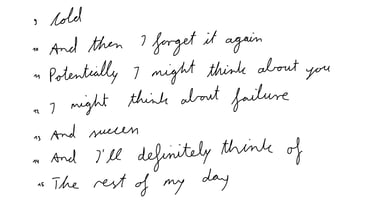 , Cold
" And then I forget it again
" Potentially I might think about you
" I might think about failure
" And success
" And I'll definitely think of
" The rest of my day